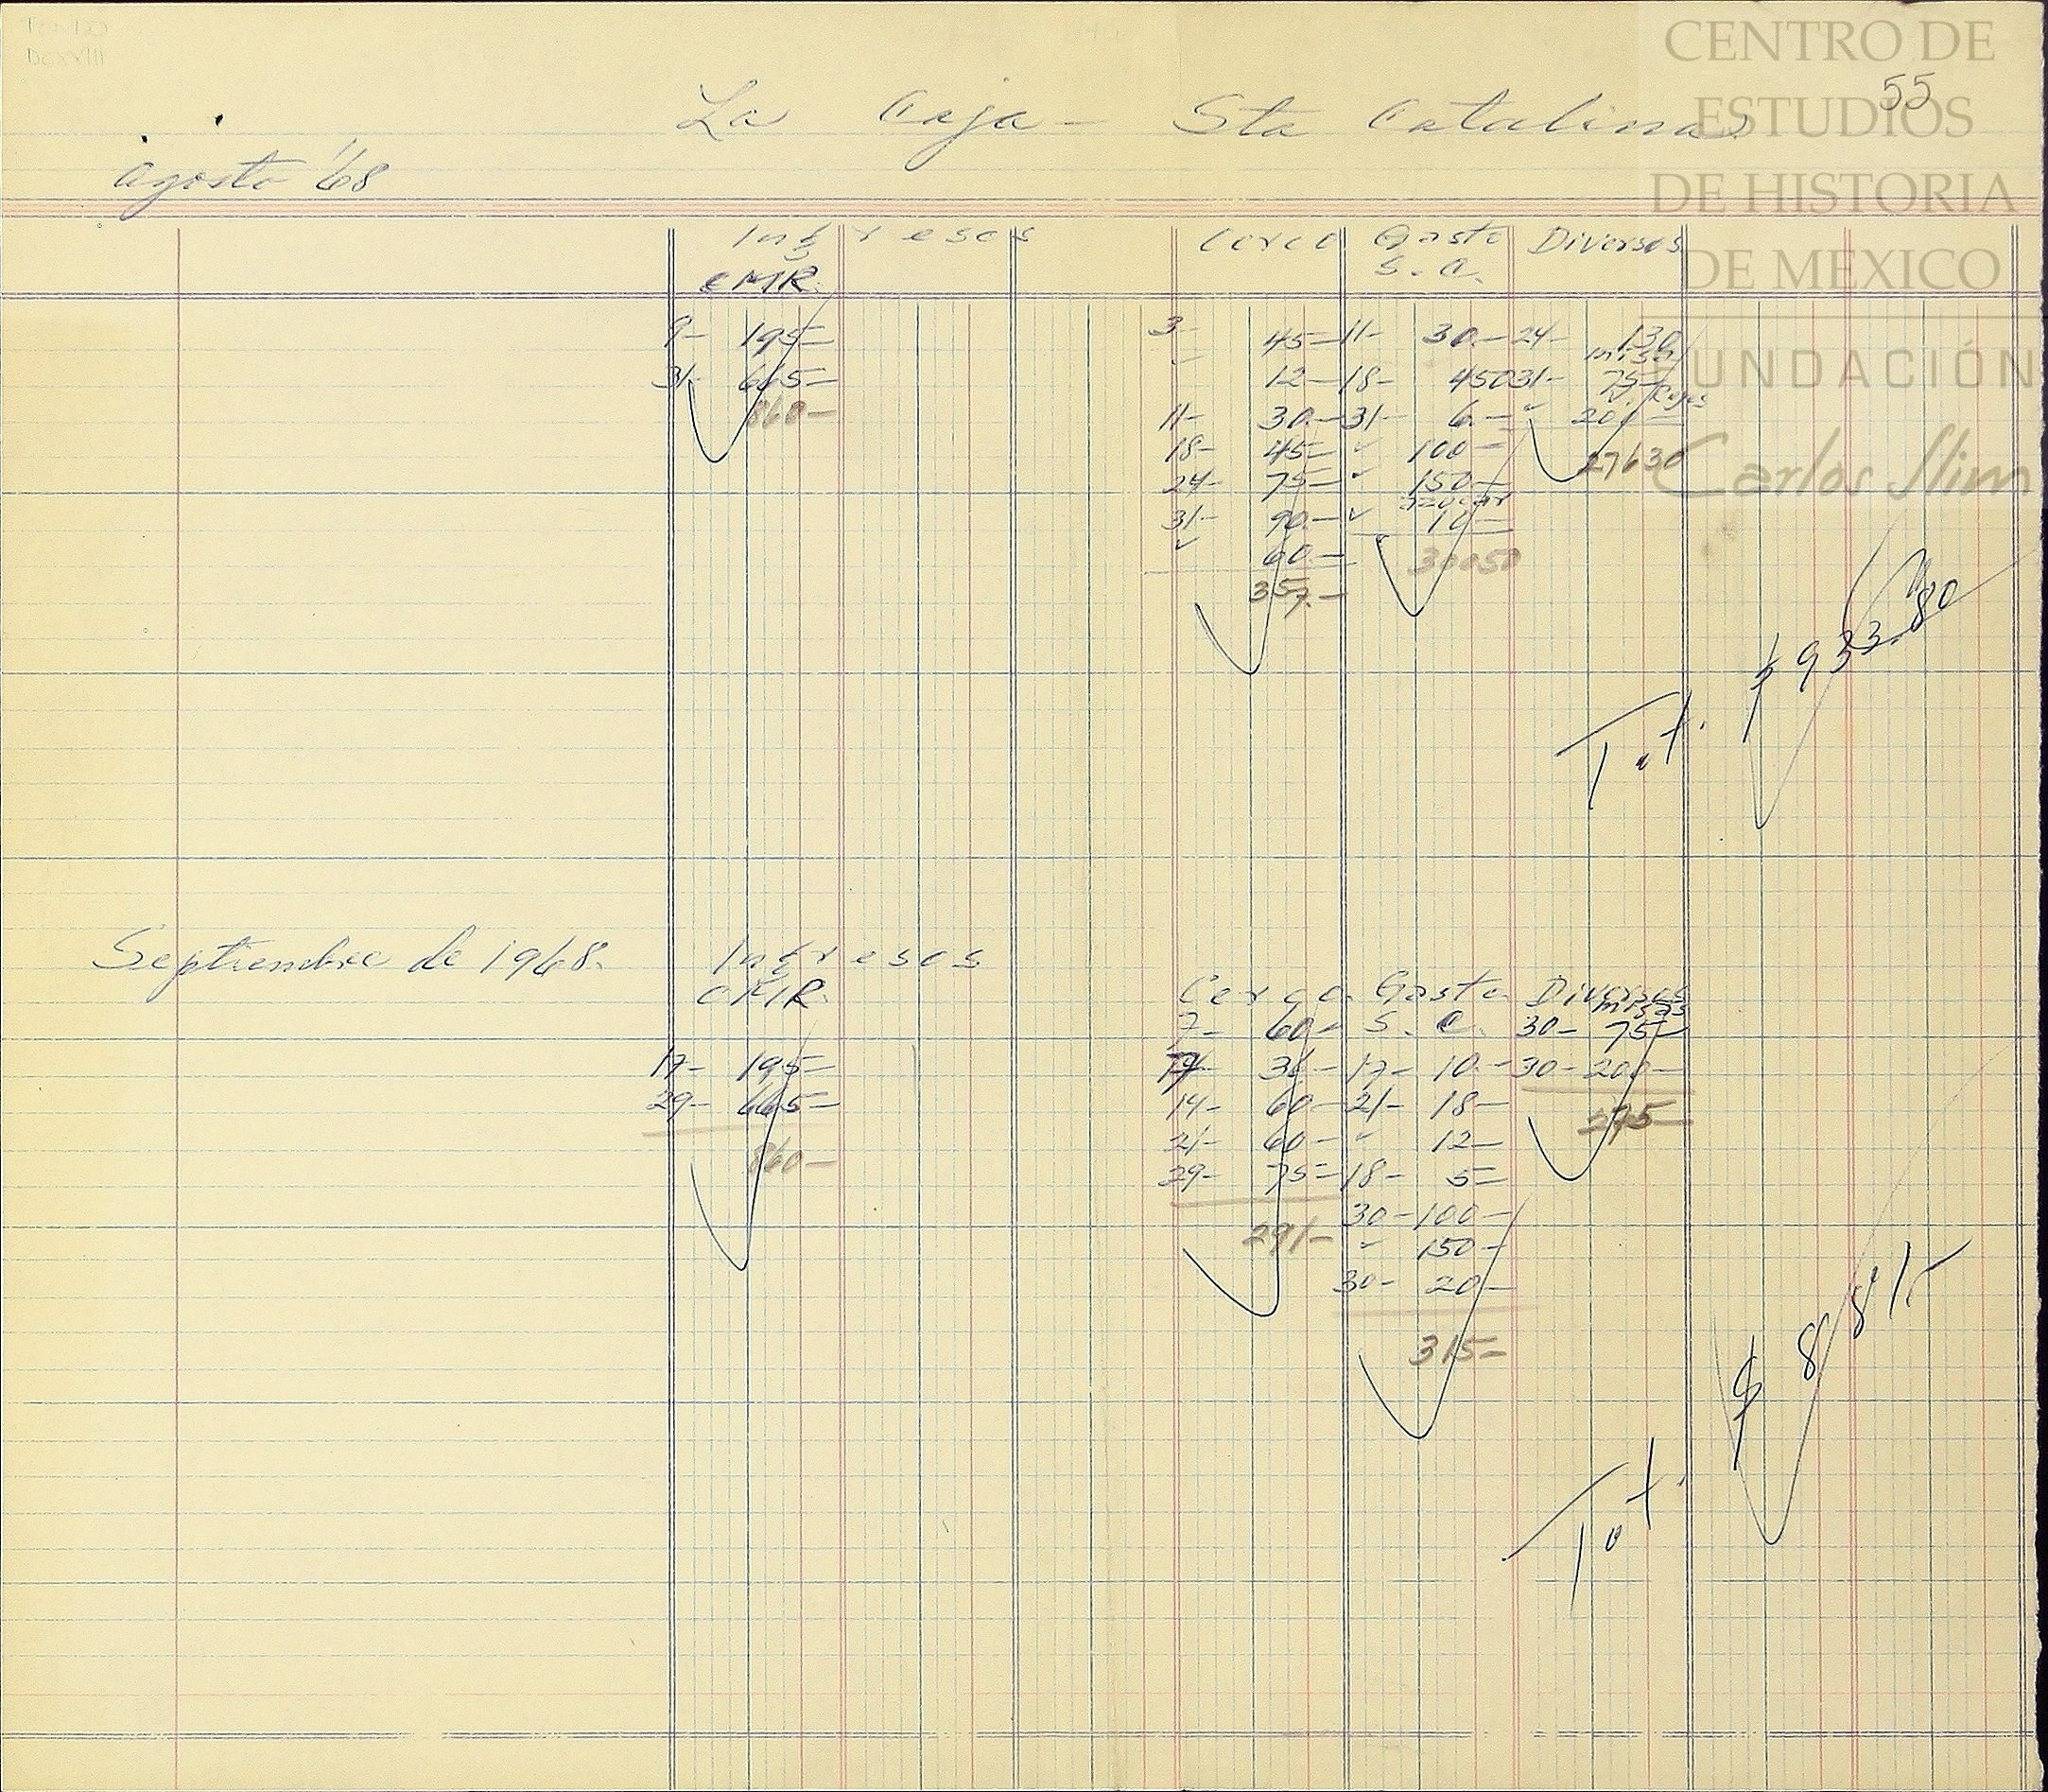 CENTRO DE
ESTUDIOS
DE HISTORIA
DE MEXICO
FUNDACIÓN
Carlos Slim
55
La Caja - Sta Catalina
agosto '68
Ingresos Cerco Gasto Diversos
CMR. S.C.
9- 195- 3- 45- 11- 30.- 24- 1 30
misa
31- 665- " 12- 18- 4 50 31- 75-
860- 11- 30.- 31- 6.- " 200-
18- 45- " 100- 276 30
24- 75- " 150-
azucar
31- 90.- " 10-
" 60.- 300 50
357.-
Tot. $ 933.80
Septiembre de 1968. Ingresos
CMR. Cerco. Gasto. Diversos
misas
7- 60- S. C. 30- 75-
17- 195- 36- 17- 10.- 30- 200-
29- 665- 14- 60- 21- 18- 275-
860- 21- 60- " 12-
29- 75- 18- 5-
291- 30- 100-
" 150-
30- 20-
315-
Tot. $ 881.-